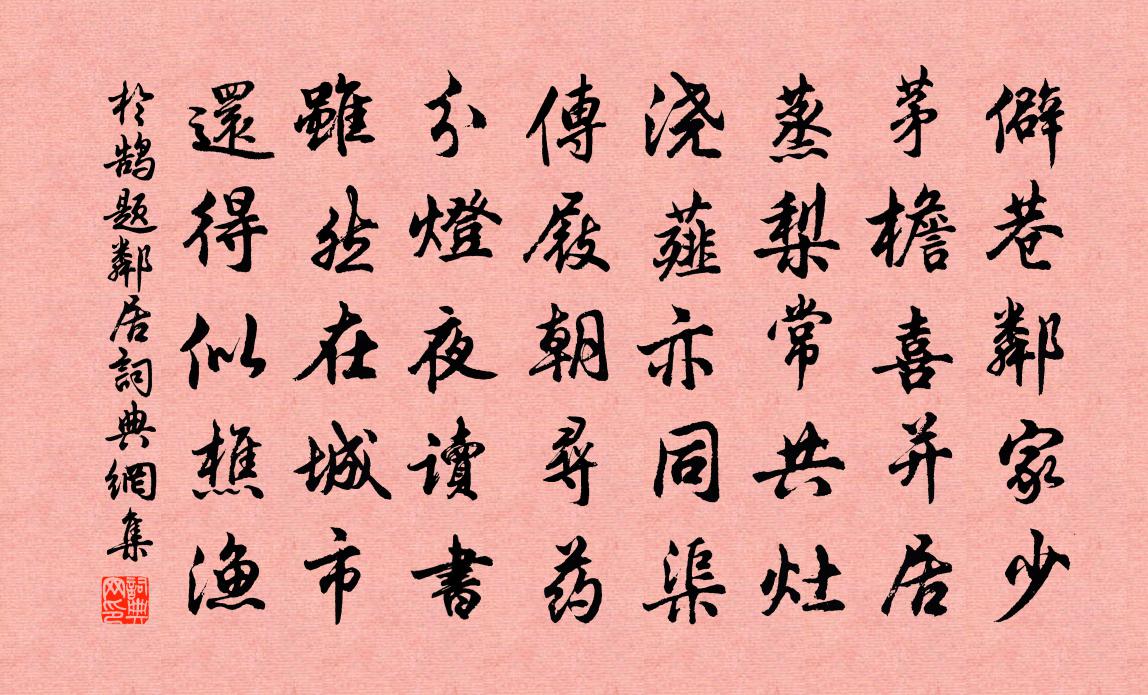 僻巷鄰家少
茅檐喜并居
蒸梨常共灶
浇薤亦同渠
傳屐朝尋药
分燈夜讀書
雖然在城市
還得似樵漁
於鹄題鄰居詞典網集
詞典网印